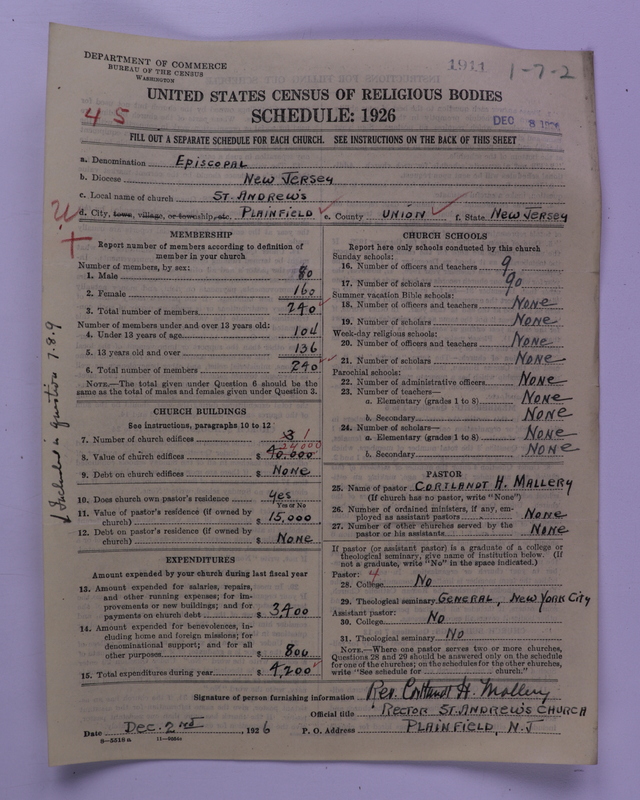 DEPARTMENT OF COMMERCE
BUREAU OF THE CENSUS
WASHINGTON
1911
1-7-2
UNITED STATES CENSUS OF RELIGIOUS BODIES
SCHEDULE: 1926
45
DEC 8 1926
FILL OUT A SEPARATE SCHEDULE FOR EACH CHURCH. SEE INSTRUCTIONS ON THE BACK OF THIS SHEET
a. Denomination EPISCOPAL
b. Diocese NEW JERSEY
c. Local name of church ST. ANDREW'S
d. City, town, village, or township, etc. PLAINFIELD e. County UNION f. State NEW JERSEY
MEMBERSHIP
Report number of members according to definition of
member in your church
Number of members, by sex:
1. Male 80
2. Female 160
3. Total number of members 240
Number of members under and over 13 years old:
4. Under 13 years of age 104
5. 13 years old and over 136
6. Total number of members 240
NOTE.—The total given under Question 6 should be the
same as the total of males and females given under Question 3.
CHURCH BUILDINGS
See instructions, paragraphs 10 to 12
7. Number of church edifices 3 1
24000
8. Value of church edifices $ 40.000
9. Debt on church edifices $ NONE
10. Does church own pastor's residence yes
Yes or No
11. Value of pastor's residence (if owned by
church) $ 15,000
12. Debt on pastor's residence (if owned by
church) $ NONE
√ Included in question 7-8-9
EXPENDITURES
Amount expended by your church during last fiscal year
13. Amount expended for salaries, repairs,
and other running expenses; for im-
provements or new buildings; and for
payments on church debt $ 3,400
14. Amount expended for benevolences, in-
cluding home and foreign missions; for
denominational support; and for all
other purposes $ 800
15. Total expenditures during year $ 4,200
CHURCH SCHOOLS
Report here only schools conducted by this church
Sunday schools:
16. Number of officers and teachers 9
17. Number of scholars 90
Summer vacation Bible schools:
18. Number of officers and teachers NONE
19. Number of scholars NONE
Week-day religious schools:
20. Number of officers and teachers NONE
21. Number of scholars NONE
Parochial schools:
22. Number of administrative officers NONE
23. Number of teachers—
a. Elementary (grades 1 to 8) NONE
b. Secondary NONE
24. Number of scholars—
a. Elementary (grades 1 to 8) NONE
b. Secondary NONE
PASTOR
25. Name of pastor CORTLANDT H. MALLERY
(If church has no pastor, write "None")
26. Number of ordained ministers, if any, em-
ployed as assistant pastors NONE
27. Number of other churches served by the
pastor or his assistants NONE
If pastor (or assistant pastor) is a graduate of a college or
theological seminary, give name of institution below. (If
not a graduate, write "No" in the space indicated.)
Pastor: 4
28. College No
29. Theological seminary GENERAL, NEW YORK CITY
Assistant pastor:
30. College No
31. Theological seminary No
NOTE.—Where one pastor serves two or more churches,
Questions 28 and 29 should be answered only on the schedule
for one of the churches; on the schedules for the other churches,
write "See schedule for ........ church."
Signature of person furnishing information Rev. Cortlandt H. Mallery
Official title RECTOR ST. ANDREW'S CHURCH
Date Dec. 2nd, 1926 P. O. Address PLAINFIELD, N.J
8-5518 a 11-9334a